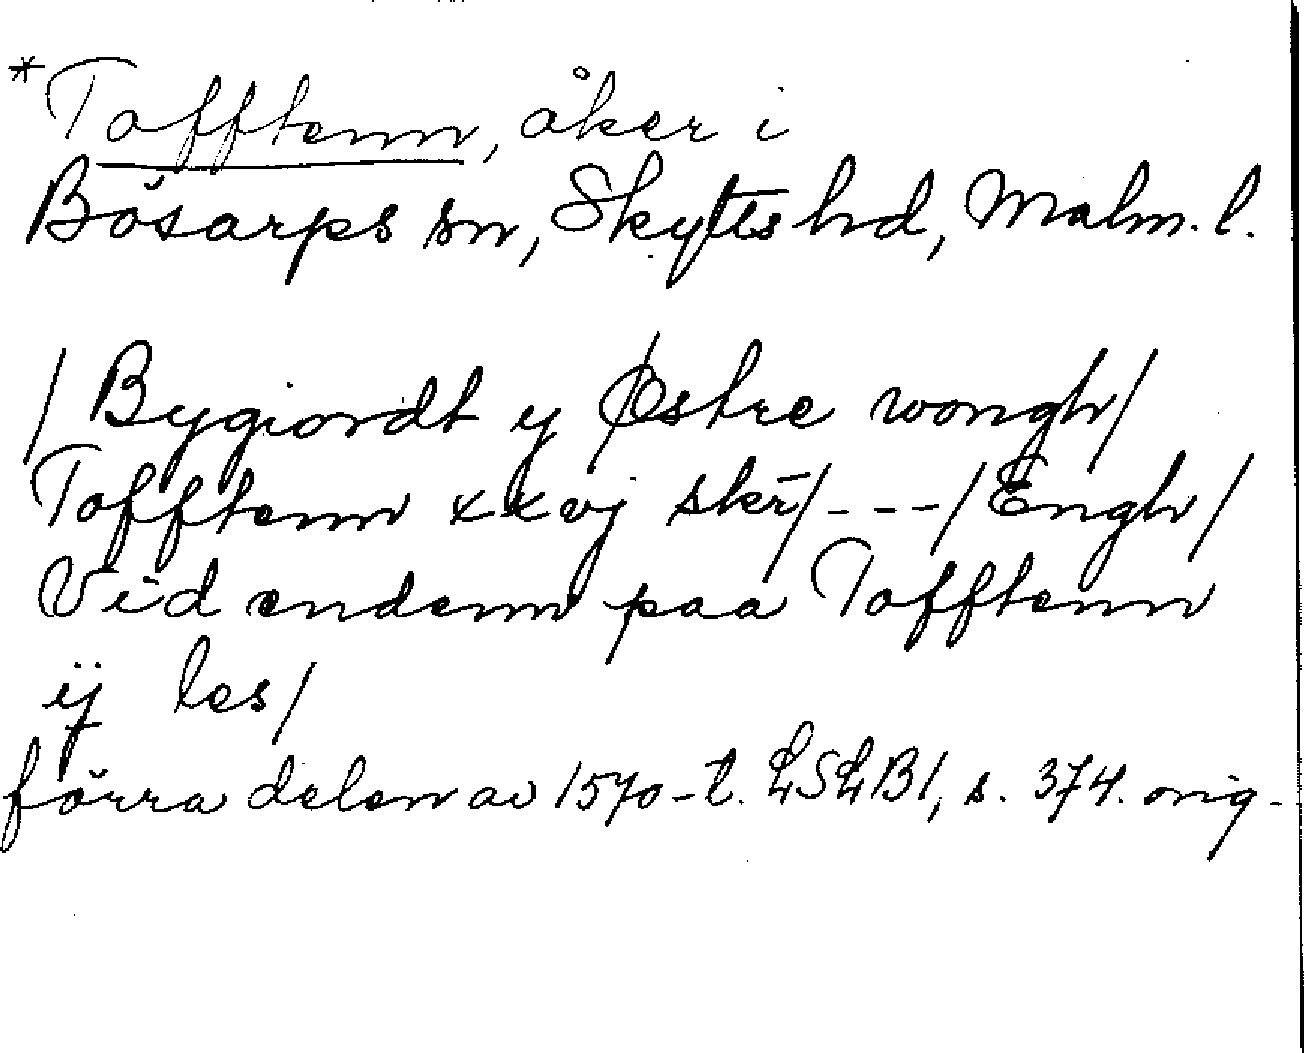 *Tofftenn, åker i
Bösarps sn, Skytts hd, Malm. l.
/Bygiordt y Østre wongh/
Tofftenn xxvj skr̄/---/Engh/
Vid endenn paa Tofftenn
ij les/
förra delen av 1570-t. LSLB1, s. 374. orig.